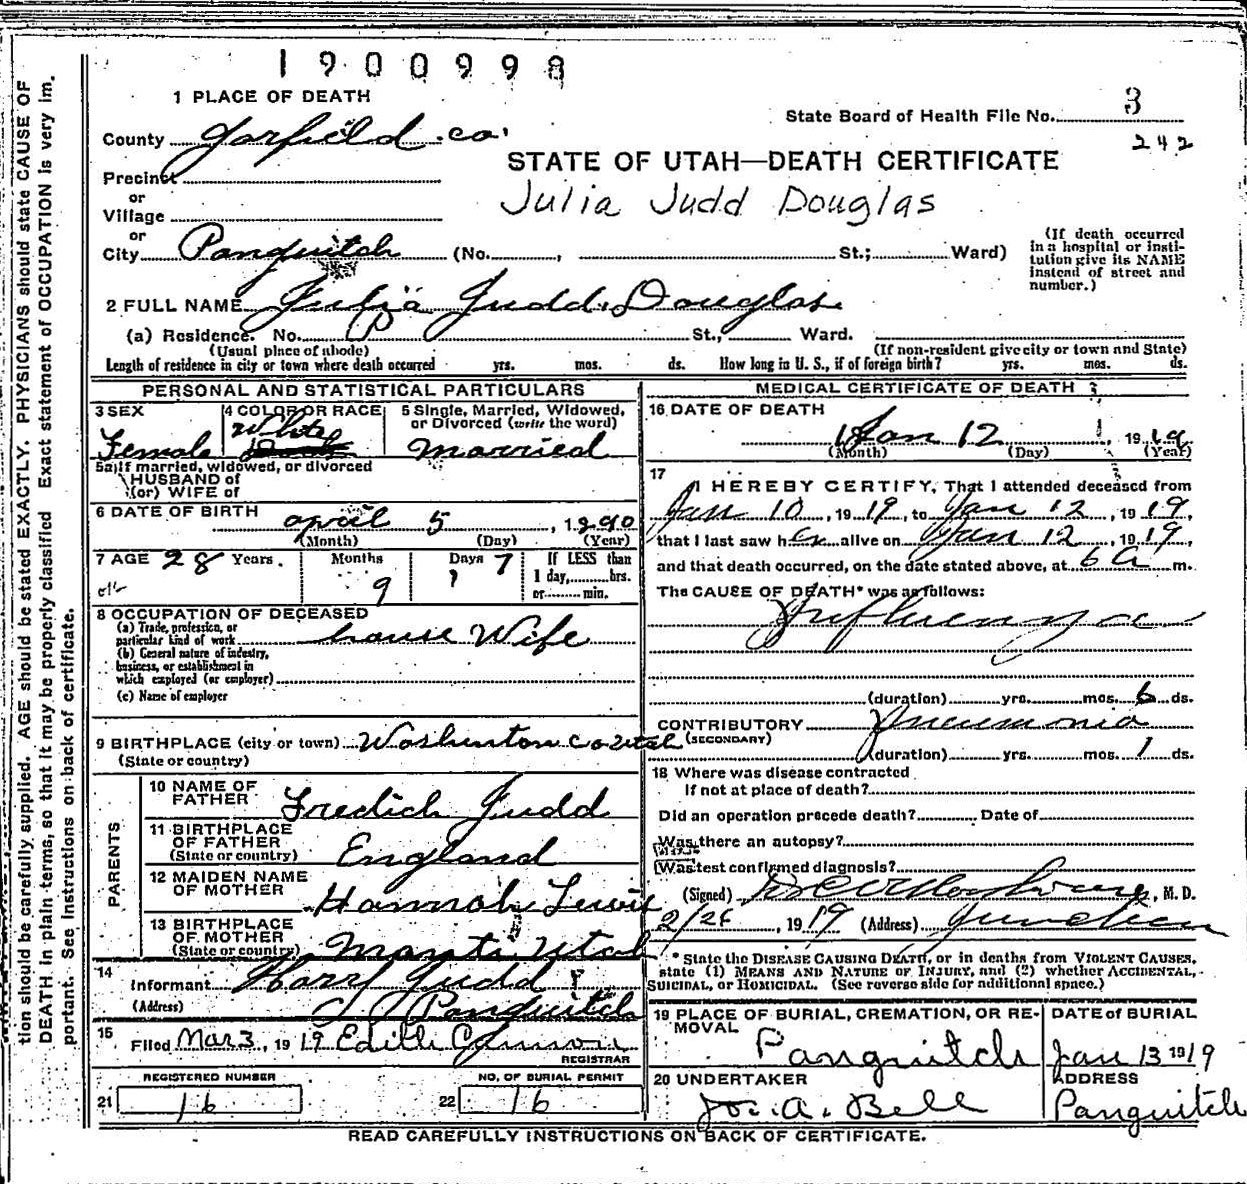 1900998
1 PLACE OF DEATH
State Board of Health File No. 3
242
County Garfield co.
STATE OF UTAH—DEATH CERTIFICATE
Precinct
or
Julia Judd Douglas
Village
or
City Panguitch (No. , St.; Ward)
(If death occurred
in a hospital or insti-
tution give its NAME
instead of street and
number.)
2 FULL NAME Julia Judd Douglas
(a) Residence. No. St., Ward.
(Usual place of abode) (If non-resident give city or town and State)
Length of residence in city or town where death occurred yrs. mos. ds. How long in U. S., if of foreign birth? yrs. mos. ds.
PERSONAL AND STATISTICAL PARTICULARS
3 SEX
Female
4 COLOR OR RACE
White
5 Single, Married, Widowed,
or Divorced (write the word)
Married
5a If married, widowed, or divorced
HUSBAND of
(or) WIFE of
6 DATE OF BIRTH
April 5, 1890
(Month) (Day) (Year)
7 AGE 28 Years. Months 9 Days 7
If LESS than
1 day, hrs.
or min.
8 OCCUPATION OF DECEASED
(a) Trade, profession, or
particular kind of work house Wife
(b) General nature of industry,
business, or establishment in
which employed (or employer)
(c) Name of employer
9 BIRTHPLACE (city or town) Washinton co utah
(State or country)
PARENTS
10 NAME OF
FATHER Fredich Judd
11 BIRTHPLACE
OF FATHER
(State or country) England
12 MAIDEN NAME
OF MOTHER Hannah Lewis
13 BIRTHPLACE
OF MOTHER
(State or country) Manti Utah
14
Informant Harry Judd
(Address) Panguitch
15
Filed Mar 3, 1919 Edith
REGISTRAR
REGISTERED NUMBER
21 16
NO. OF BURIAL PERMIT
22 16
MEDICAL CERTIFICATE OF DEATH
16 DATE OF DEATH
Jan 12, 1919
(Month) (Day) (Year)
17
I HEREBY CERTIFY, That I attended deceased from
Jan 10, 1919, to Jan 12, 1919,
that I last saw her alive on Jan 12, 1919,
and that death occurred, on the date stated above, at 6 a m.
The CAUSE OF DEATH* was as follows:
Influenza
(duration) yrs. mos. 6 ds.
CONTRIBUTORY Pneumonia
(SECONDARY)
(duration) yrs. mos. 1 ds.
18 Where was disease contracted
If not at place of death?
Did an operation precede death? Date of
Was there an autopsy?
Was test confirmed diagnosis?
(Signed) , M. D.
2/26, 1919 (Address) Junction
* State the DISEASE CAUSING DEATH, or in deaths from VIOLENT CAUSES,
state (1) MEANS AND NATURE OF INJURY, and (2) whether ACCIDENTAL,
SUICIDAL, or HOMICIDAL. (See reverse side for additional space.)
19 PLACE OF BURIAL, CREMATION, OR RE-
MOVAL
Panguitch
DATE of BURIAL
Jan 13 1919
20 UNDERTAKER
Jos. A. Bell
ADDRESS
Panguitch
READ CAREFULLY INSTRUCTIONS ON BACK OF CERTIFICATE.
tion should be carefully supplied. AGE should be stated EXACTLY. PHYSICIANS should state CAUSE OF
DEATH in plain terms, so that it may be properly classified. Exact statement of OCCUPATION is very im-
portant. See Instructions on back of certificate.